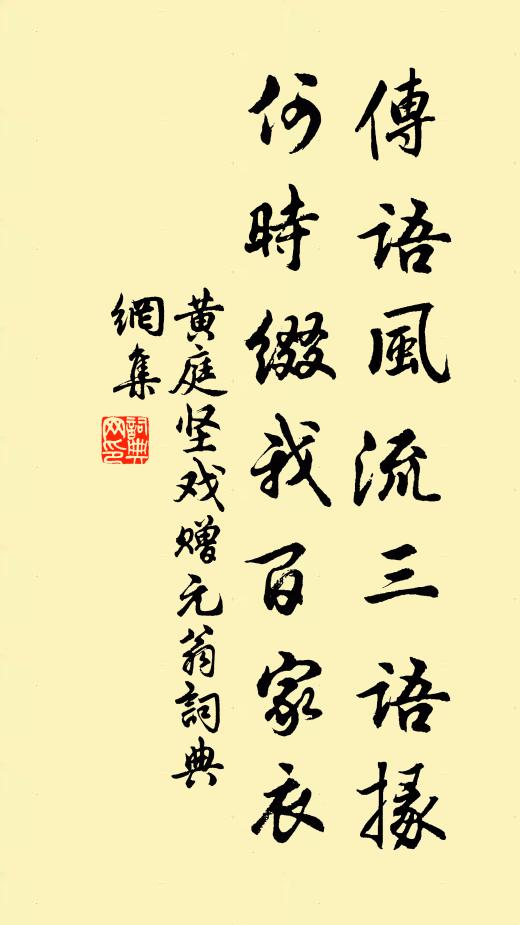 傳語風流三語掾
何時綴我百家衣
黄庭坚戏赠元翁詞典
網集
詞典
网印